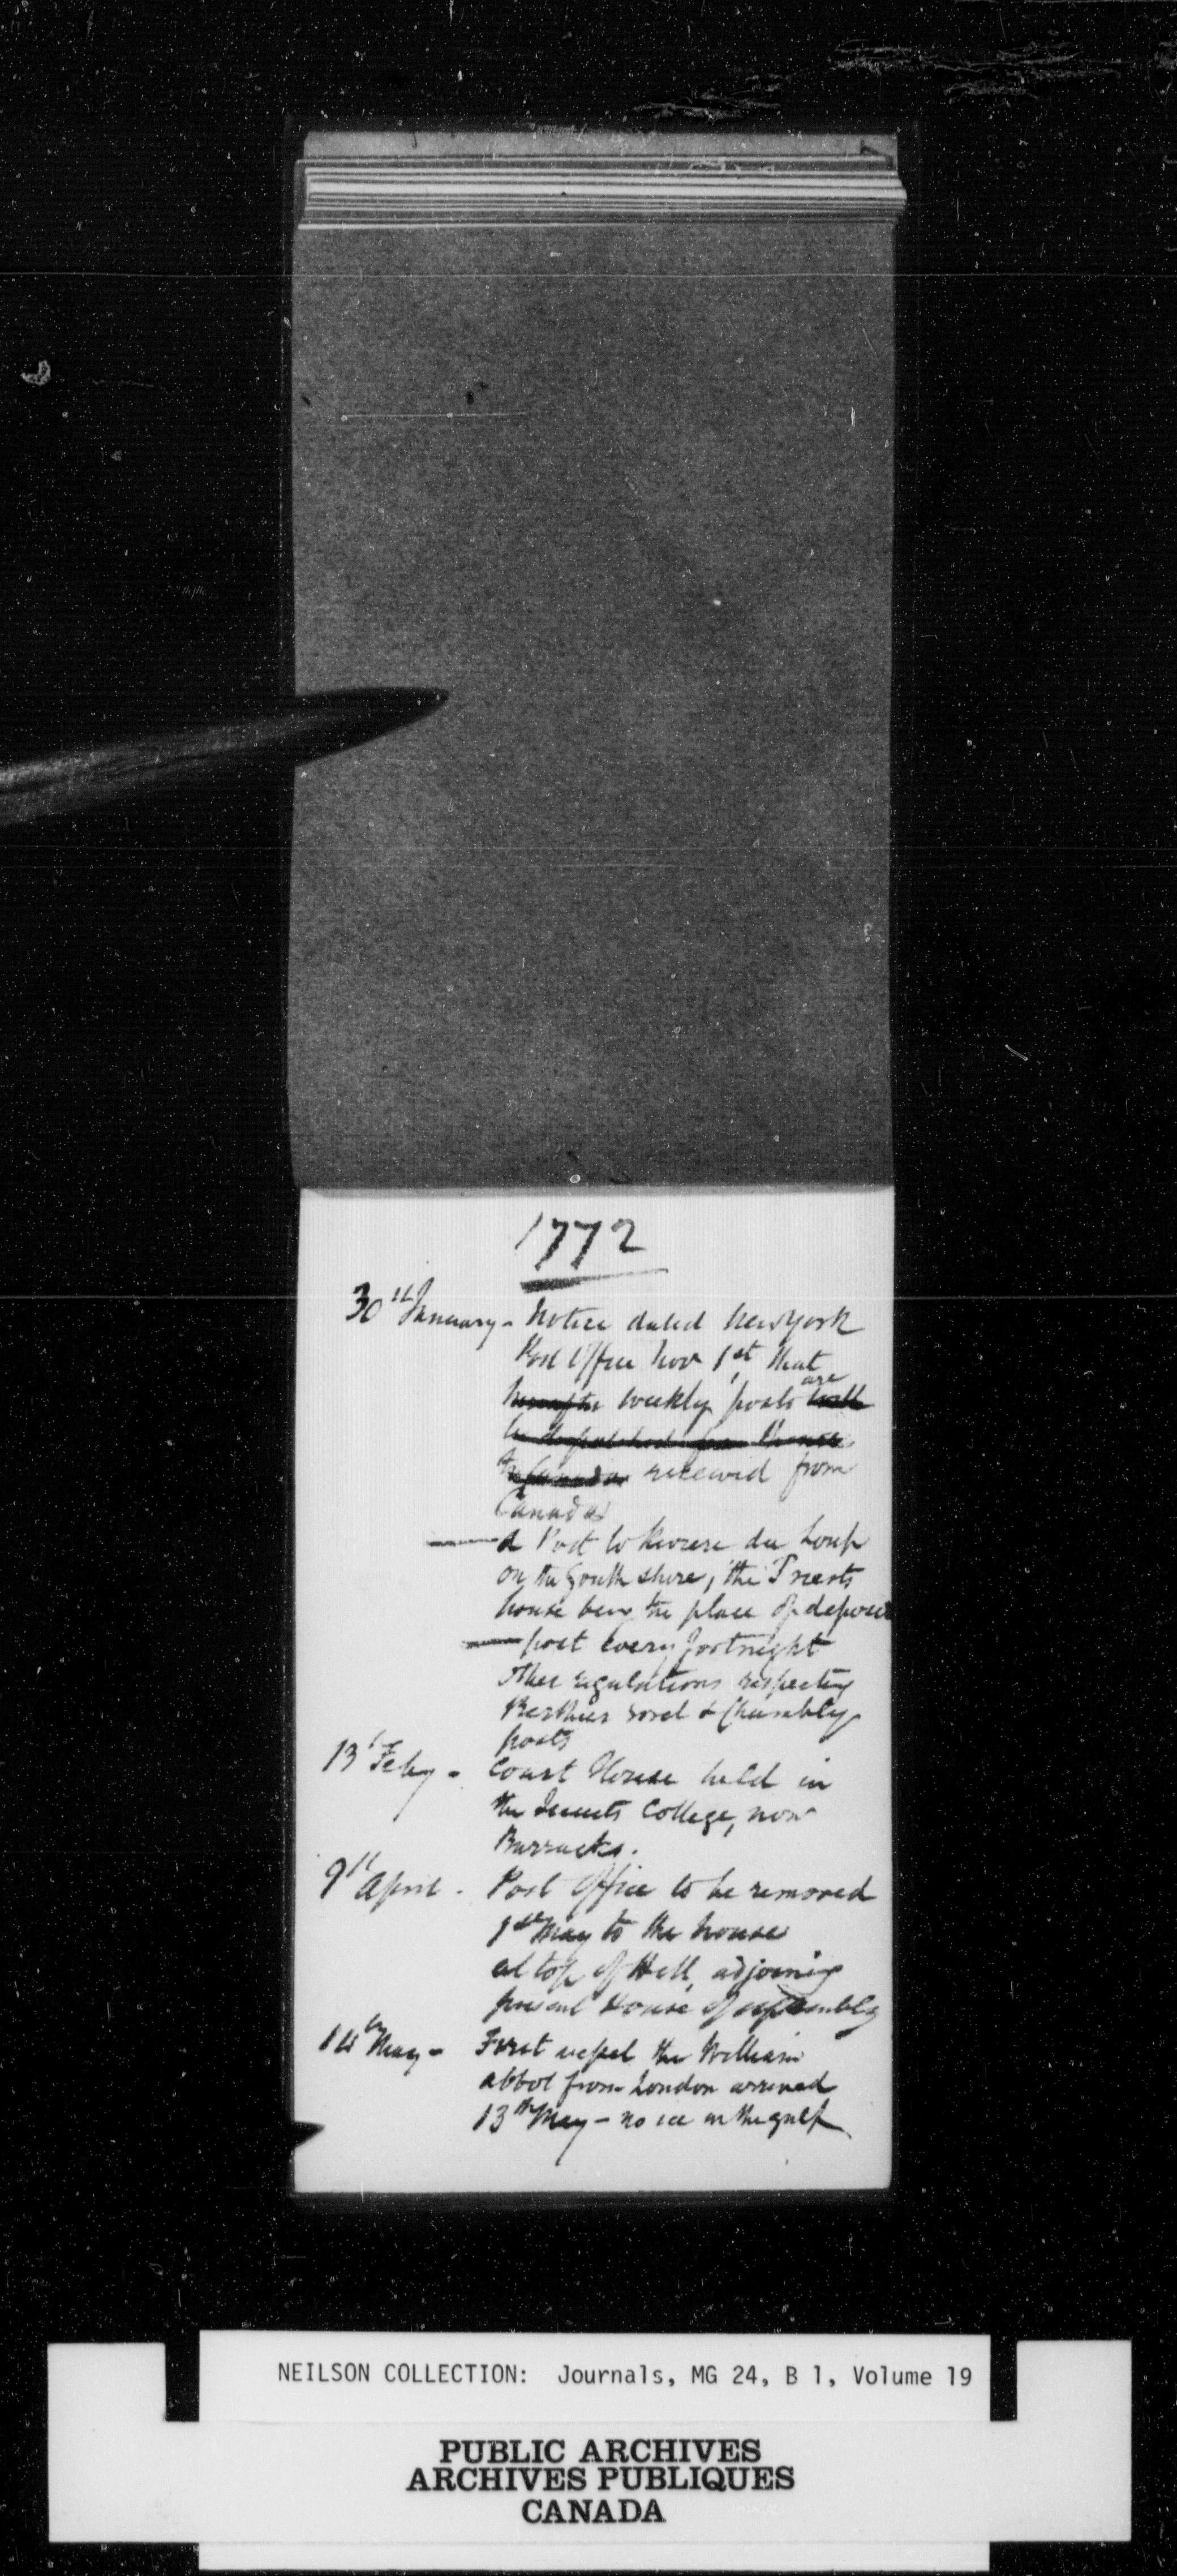 1772
30th January - Notice dated New York
Post Office Nov 1st, that
hereafter weekly posts will are
be despatched from thence
to Canada received from
Canada
— A Post to Riviere du Loup
on the South shore, the Priests
house being the place of deposit
— post every fortnight
other regulations respecting
Berthier Sorel & Chambly
posts
13 Feby - Court House held in
the Jesuits College, now
Barracks.
9th April - Post Office to be removed
1st May to the house
at top of Hill, adjoining
present House of Assembly
14th May - First vessel the William
abbot from London arrived
13th May - no ice in the gulf
NEILSON COLLECTION: Journals, MG 24, B 1, Volume 19
PUBLIC ARCHIVES
ARCHIVES PUBLIQUES
CANADA